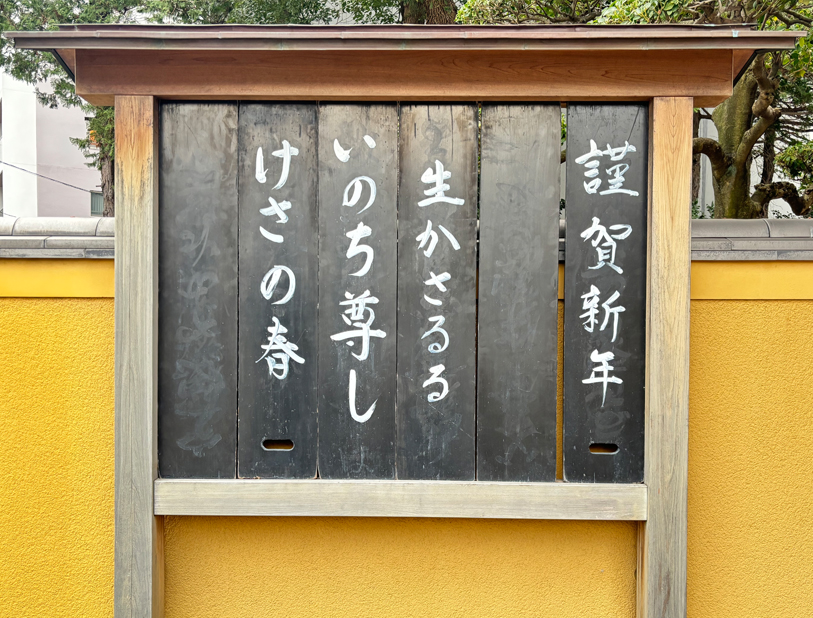 謹賀新年
生かさるる
いのち尊し
けさの春